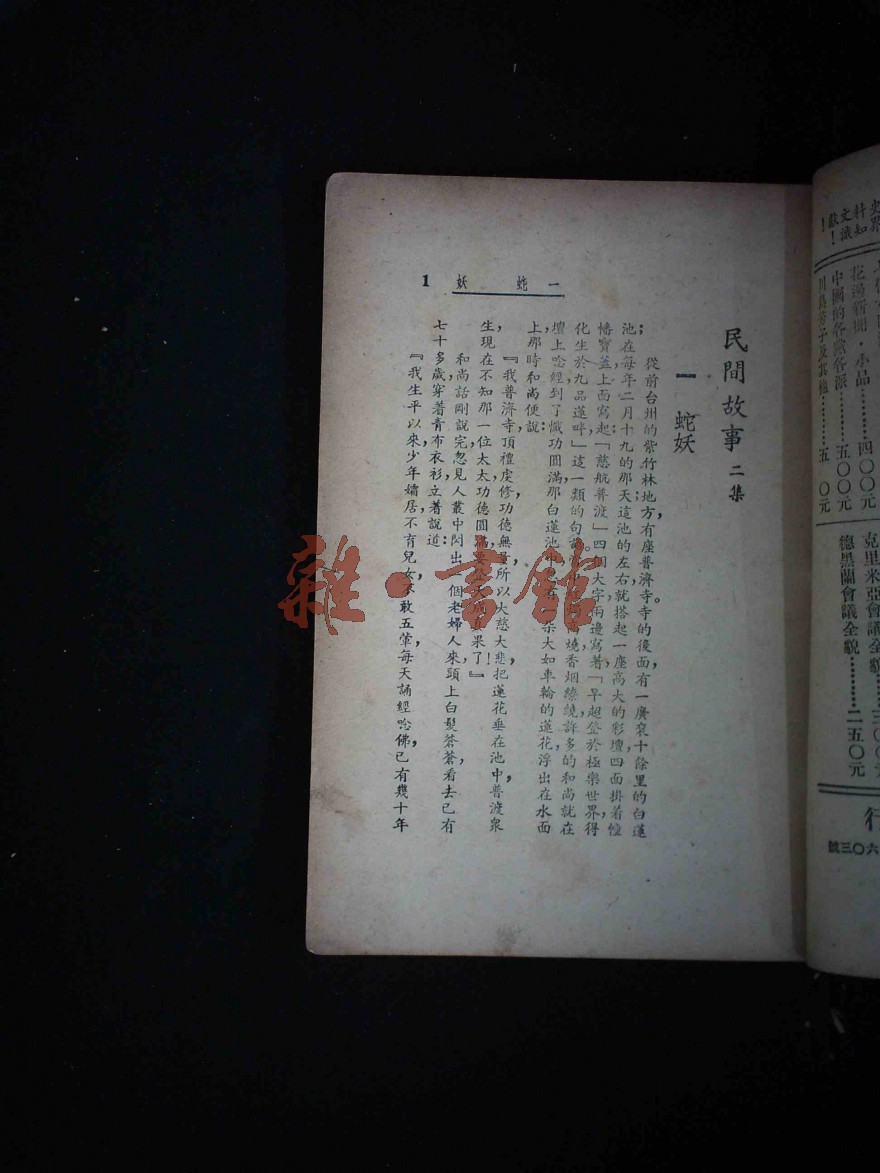 史界
科知
文識
獻！
！
花邊新聞·小品………四〇〇元
中國的各黨各派………五〇〇元
川島芳子及其他………五〇元
克里米亞會議全貌………三〇〇元
德黑蘭會議全貌………二五〇元
行
六〇三號
民間故事 二集
一 蛇妖
一 蛇妖 1
從前台州的紫竹林地方，有座普濟寺。寺的後面，有一廣袤十餘里的白蓮
池；在每年二月十九的那天，這池的左右，就搭起一座高大的彩壇，四面掛着幢
幡寶蓋，上面寫起「慈航普渡」四個大字，兩邊寫著「早超登於極樂世界，得
化生於九品蓮畔」這一類的句 燒香烟繚繞，許多的和尚就在
壇上唸經，到了懺功圓滿，那白蓮池中 朵大如車輪的蓮花，浮出在水面
上，那時和尚便說：
『我普濟寺，頂禮虔修，功德無量，所以大慈大悲，把蓮花垂在池中，普渡衆
生，現在不知那一位太太功德圓滿，要 大 果了！』
和尚話剛說完，忽見人叢中閃出一個老婦人來，頭上白髮蒼蒼，看去已有
七十多歲，穿著青布衣衫，立着說道：
『我生平以來，少年孀居，不育兒女，不敢五葷，每天誦經唸佛，已有幾十年
雜·書館